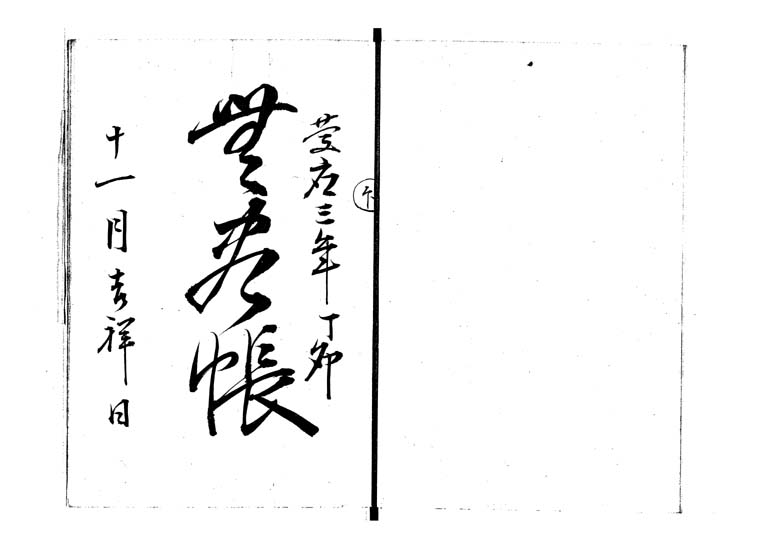 慶応三年丁卯
無尽帳
十一月吉祥日